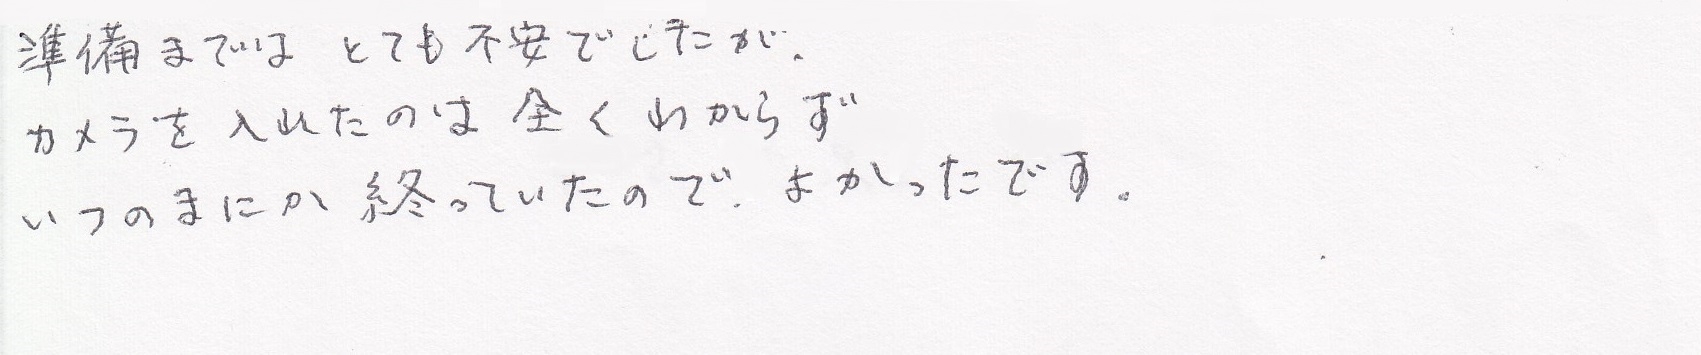 準備まではとても不安でしたが、
カメラを入れたのは全くわからず
いつのまにか終っていたので、よかったです。